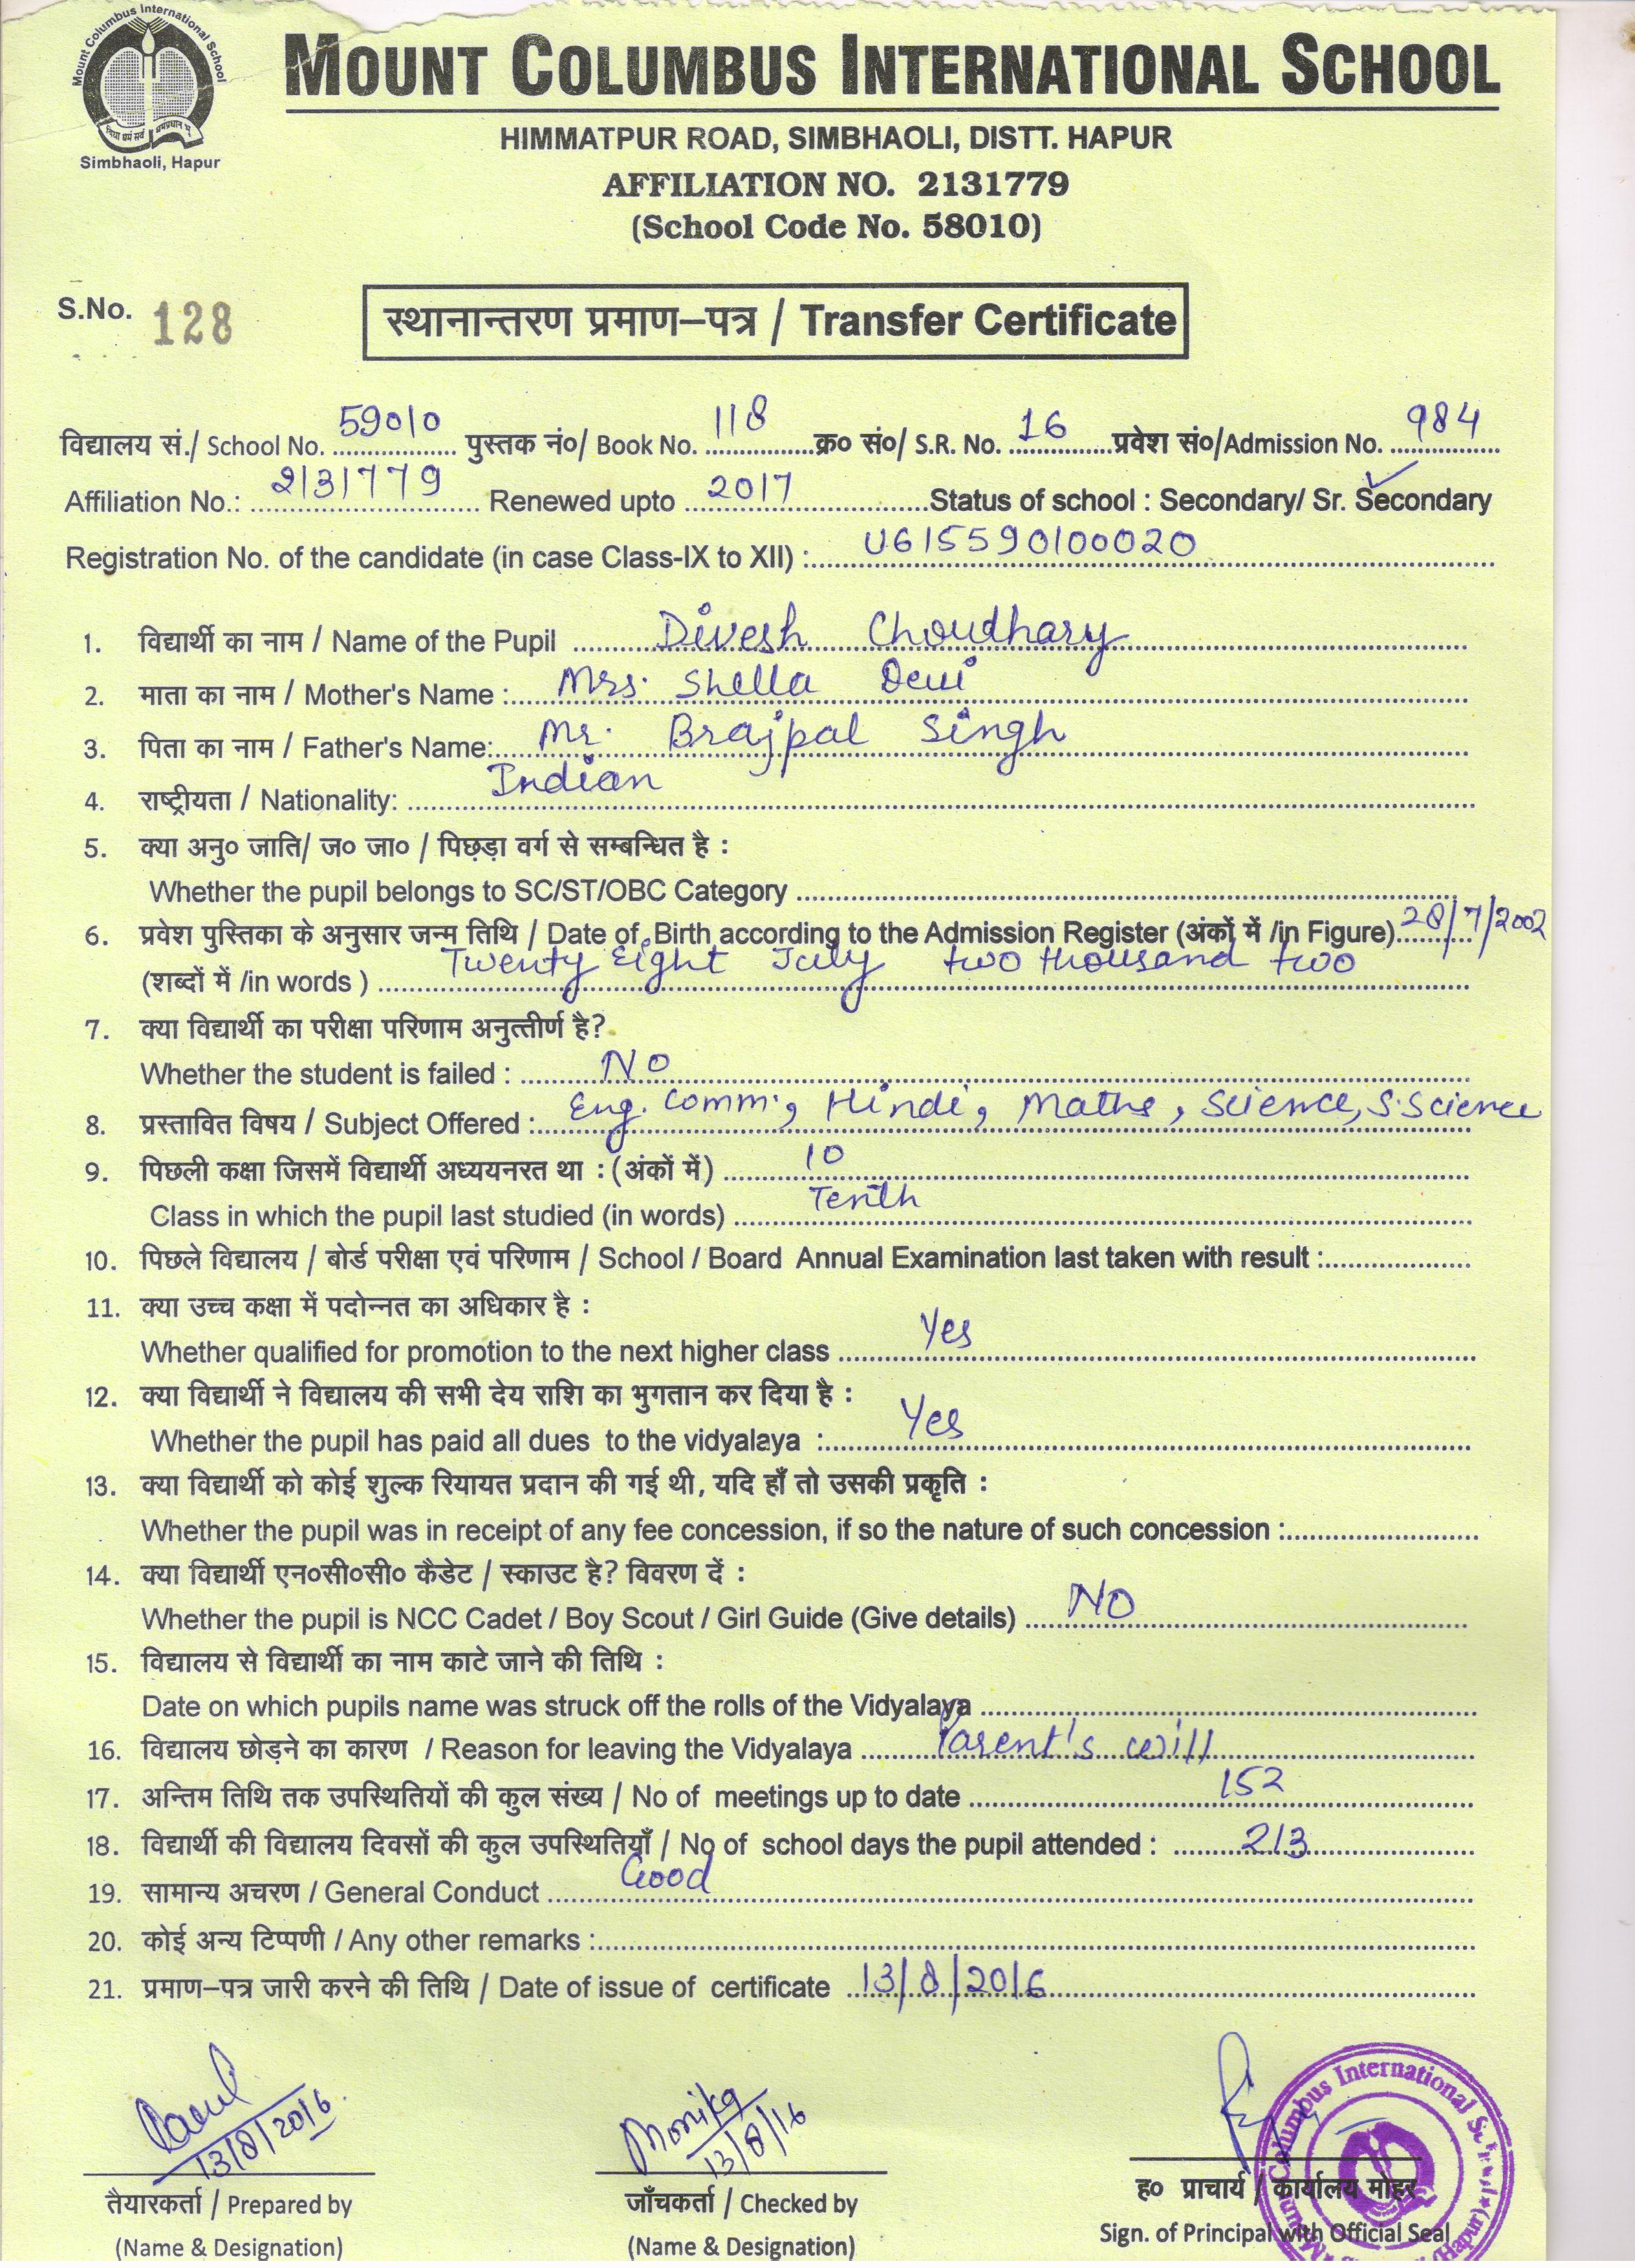 Mount Columbus International School
Simbhaoli, Hapur
MOUNT COLUMBUS INTERNATIONAL SCHOOL
HIMMATPUR ROAD, SIMBHAOLI, DISTT. HAPUR
AFFILIATION NO. 2131779
(School Code No. 58010)
S.No. 128
स्थानान्तरण प्रमाण–पत्र / Transfer Certificate
विद्यालय सं./ School No. 59010 पुस्तक नं०/ Book No. 118 क्र० सं०/ S.R. No. 16 प्रवेश सं०/Admission No. 984
Affiliation No.: 2131779 Renewed upto 2017 Status of school : Secondary/ Sr. Secondary ✓
Registration No. of the candidate (in case Class-IX to XII) : U615590100020
1. विद्यार्थी का नाम / Name of the Pupil Divesh Choudhary
2. माता का नाम / Mother's Name : Mrs. Shella Devi
3. पिता का नाम / Father's Name: Mr. Brajpal Singh
4. राष्ट्रीयता / Nationality: Indian
5. क्या अनु० जाति/ ज० जा० / पिछड़ा वर्ग से सम्बन्धित है :
Whether the pupil belongs to SC/ST/OBC Category
6. प्रवेश पुस्तिका के अनुसार जन्म तिथि / Date of Birth according to the Admission Register (अंकों में /in Figure) 28/7/2002
(शब्दों में /in words ) Twenty Eight July two thousand two
7. क्या विद्यार्थी का परीक्षा परिणाम अनुत्तीर्ण है?
Whether the student is failed : NO
8. प्रस्तावित विषय / Subject Offered : Eng. Comm., Hindi, Maths, Science, S.Science
9. पिछली कक्षा जिसमें विद्यार्थी अध्ययनरत था : (अंकों में) 10
Class in which the pupil last studied (in words) Tenth
10. पिछले विद्यालय / बोर्ड परीक्षा एवं परिणाम / School / Board Annual Examination last taken with result :
11. क्या उच्च कक्षा में पदोन्नत का अधिकार है :
Whether qualified for promotion to the next higher class Yes
12. क्या विद्यार्थी ने विद्यालय की सभी देय राशि का भुगतान कर दिया है :
Whether the pupil has paid all dues to the vidyalaya : Yes
13. क्या विद्यार्थी को कोई शुल्क रियायत प्रदान की गई थी, यदि हाँ तो उसकी प्रकृति :
Whether the pupil was in receipt of any fee concession, if so the nature of such concession :
14. क्या विद्यार्थी एन०सी०सी० कैडेट / स्काउट है? विवरण दें :
Whether the pupil is NCC Cadet / Boy Scout / Girl Guide (Give details) NO
15. विद्यालय से विद्यार्थी का नाम काटे जाने की तिथि :
Date on which pupils name was struck off the rolls of the Vidyalaya
16. विद्यालय छोड़ने का कारण / Reason for leaving the Vidyalaya Parent's will
17. अन्तिम तिथि तक उपस्थितियों की कुल संख्य / No of meetings up to date 152
18. विद्यार्थी की विद्यालय दिवसों की कुल उपस्थितियाँ / No of school days the pupil attended : 213
19. सामान्य अचरण / General Conduct Good
20. कोई अन्य टिप्पणी / Any other remarks :
21. प्रमाण–पत्र जारी करने की तिथि / Date of issue of certificate 13/8/2016
13/8/2016 Monika 13/8/16
तैयारकर्ता / Prepared by जाँचकर्ता / Checked by ह० प्राचार्य / कार्यालय मोहर
(Name & Designation) (Name & Designation) Sign. of Principal with Official Seal
Mount Columbus International School (Hapur)